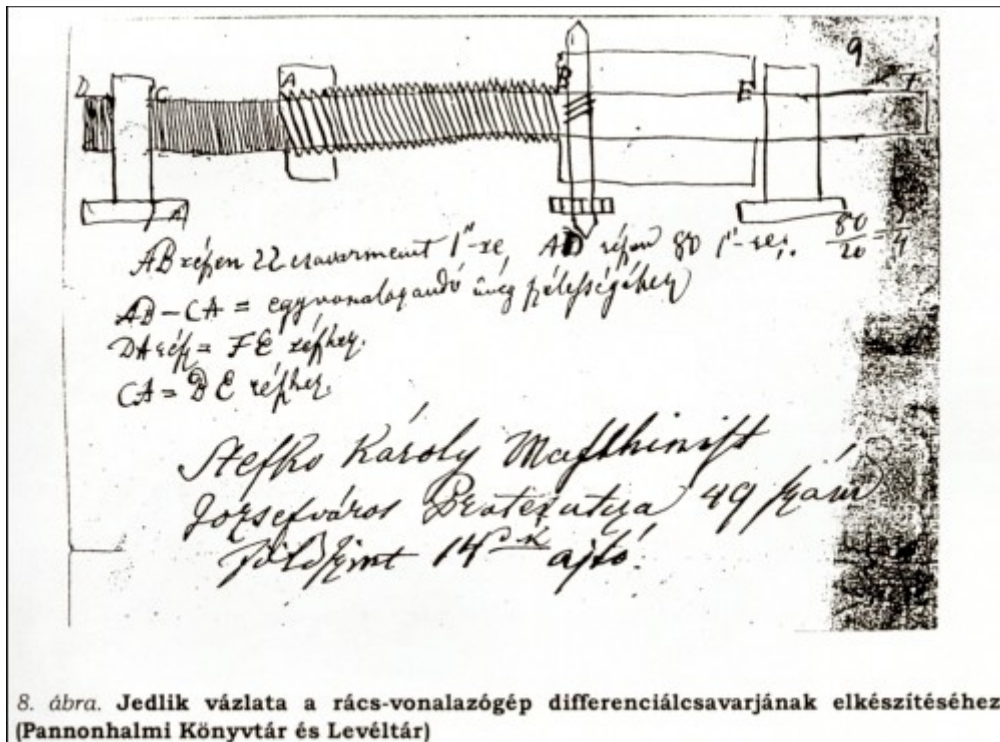 9
D C A B E F
A
AB részen 22 csavarmenet 1"-re, AD részen 80 1"-re; 80/20 = 4
AB – CA = egy vonalozandó üveg szélességéhez
DA rész = FE részhez.
CA = BE részhez.
Stefko Károly Maschinist
Jozsefváros 49 szám
földszint 14 ajtó.
8. ábra. Jedlik vázlata a rács-vonalazógép differenciálcsavarjának elkészítéséhez
(Pannonhalmi Könyvtár és Levéltár)